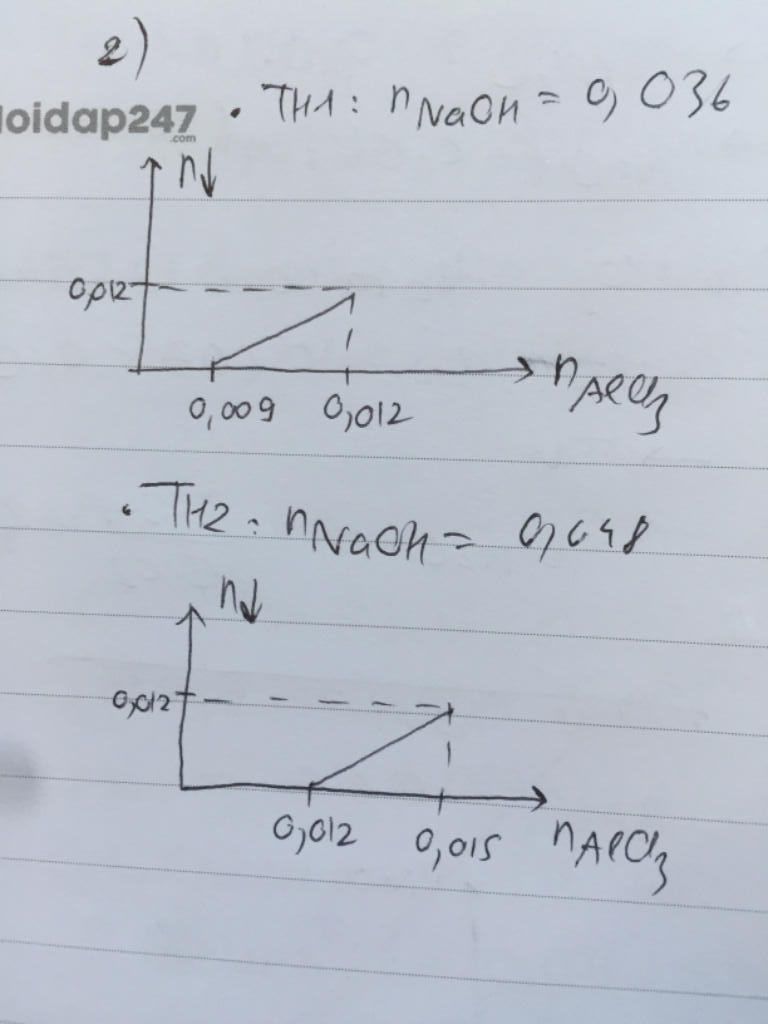 2)
loidap247
.com
• TH1: nNaOH = 0,036
n↓
0,012
0,009 0,012
nAlCl3
• TH2: nNaOH = 0,048
n↓
0,012
0,012 0,015 nAlCl3